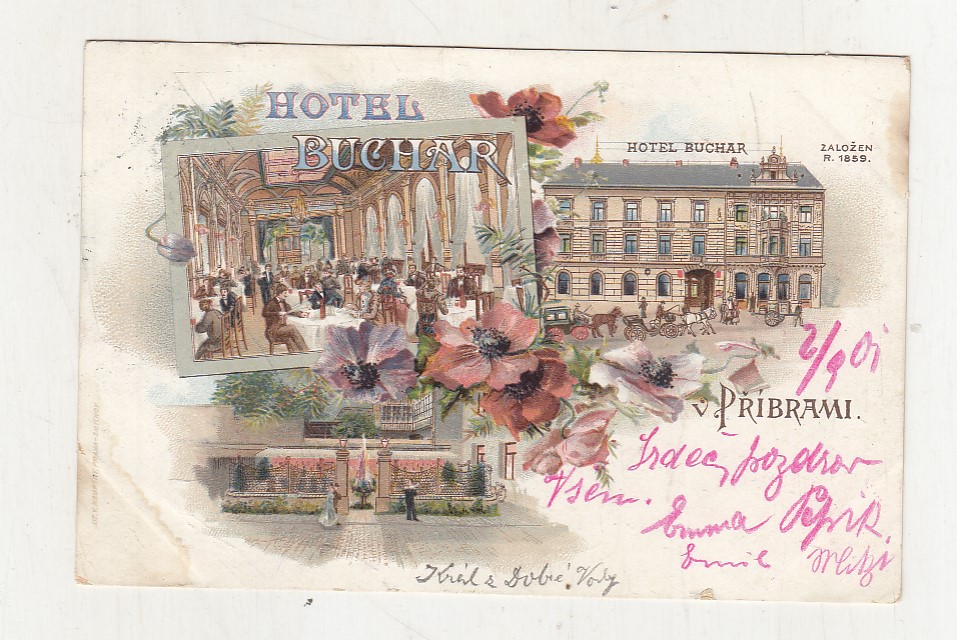 HOTEL
BUCHAR
HOTEL BUCHAR
ZALOŽEN
R. 1859.
2/9 01
v PŘÍBRAMI.
Srdeč. pozdrav
Všem.
Emma Pepík
Emil Mitzi
Král z Dobré Vody